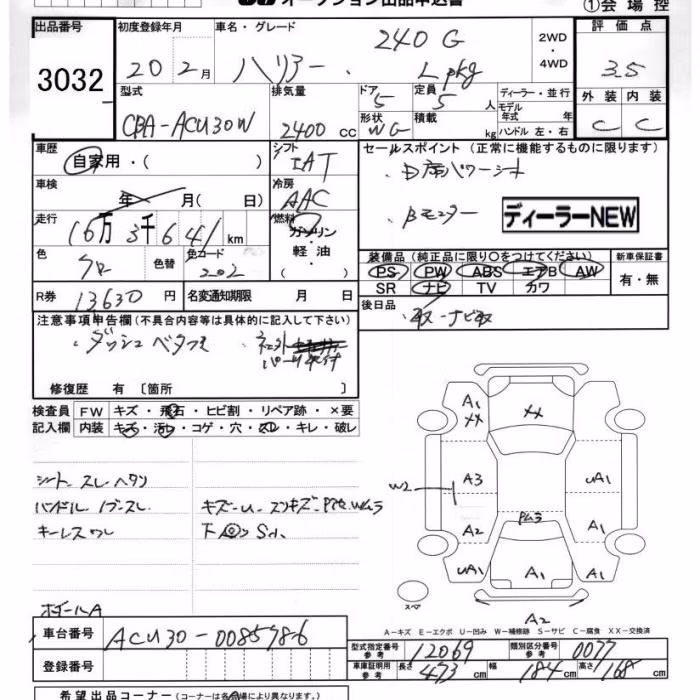 オークション出品申込書
①会場控
出品番号 3032
初度登録年月 20 2月
車名・グレード ハリアー 240 G Lpkg
2WD・4WD
評価点 3.5
型式 CBA-ACU30W
排気量 2400 cc
ドア 5
形状 WG
定員 5 人
積載 kg
ディーラー・並行
モデル年式 年
ハンドル 左・右
外装 C 内装 C
車歴 自家用・( )
シフト IAT
車検 年 月( 日)
冷房 AAC
走行 16万3千641 km
燃料 ガソリン・軽油・( )
色 クロ 色替 色コード 202
R券 13630 円 名変通知期限 月 日
セールスポイント (正常に機能するものに限ります)
・D席パワーシート
・Bモニター
ディーラーNEW
装備品 (純正品に限り〇をつけてください) 新車保証書
PS PW ABS エアB AW 有・無
SR ナビ TV カワ
後日品 取・ナビ取
注意事項申告欄(不具合内容等は具体的に記入して下さい)
・ダッシュベタツキ
修復歴 有 〔箇所 〕
検査員記入欄 FW キズ・飛石・ヒビ割・リペア跡・×要
内装 キズ・汚レ・コゲ・穴・スレ・キレ・破レ
シート スレ ヘタリ
ハンドル ノブ スレ
キーレスワレ
下回り Sリ、
ボデールA
A1 XX
XX
W2
A3
UA1
A2
Pムラ
A1
UA1
A1
A1
スペア
A2
A-キズ E-エクボ U-凹み W-補修跡 S-サビ C-腐食 XX-交換済
車台番号 ACU30-0085786
登録番号
型式指定番号 参考 12069
類別区分番号 参考 0077
車庫証明用 参考 長さ 473 cm 幅 184 cm 高さ 168 cm
希望出品コーナー(コーナーは各会場により異なります。)